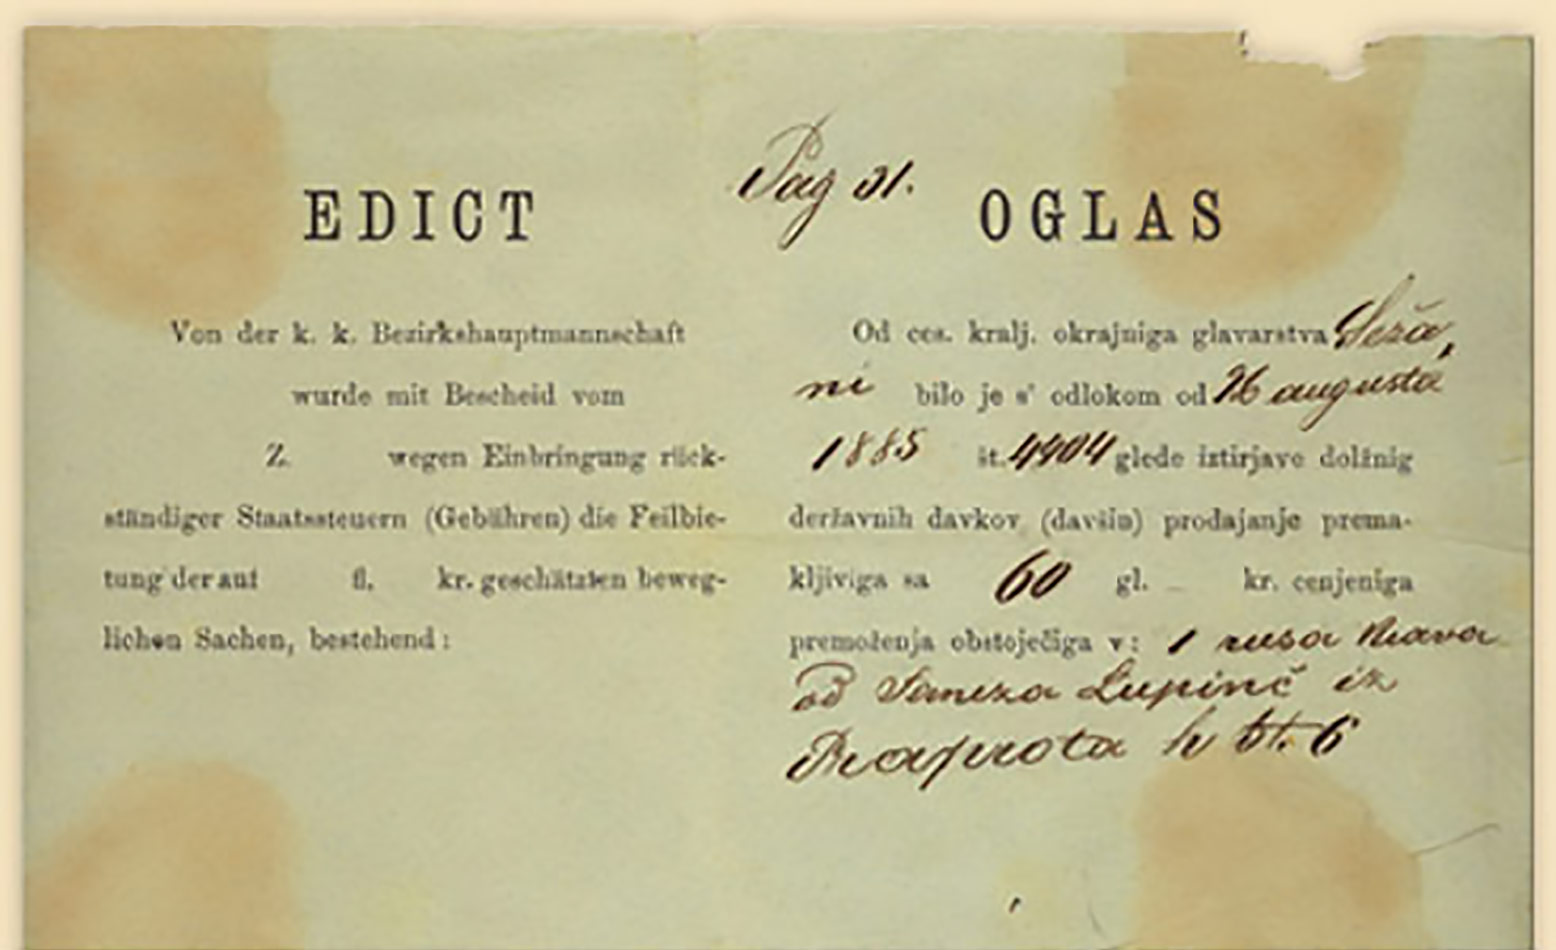 Pag 31.
EDICT
Von der k. k. Bezirkshauptmannschaft
wurde mit Bescheid vom
Z. wegen Einbringung rück-
ständiger Staatssteuern (Gebühren) die Feilbie-
tung der auf fl. kr. geschätzten beweg-
lichen Sachen, bestehend:
OGLAS
Od ces. kralj. okrajniga glavarstva Seža,
ni bilo je s' odlokom od 26 augusta
1885 št. 4904 glede iztirjave dolžnig
deržavnih davkov (davšin) prodajanje prema-
kljiviga sa 60 gl. _ kr. cenjeniga
premoženja obstoječiga v: 1 rusa krava
od Lupinč iz
Praprota h št. 6